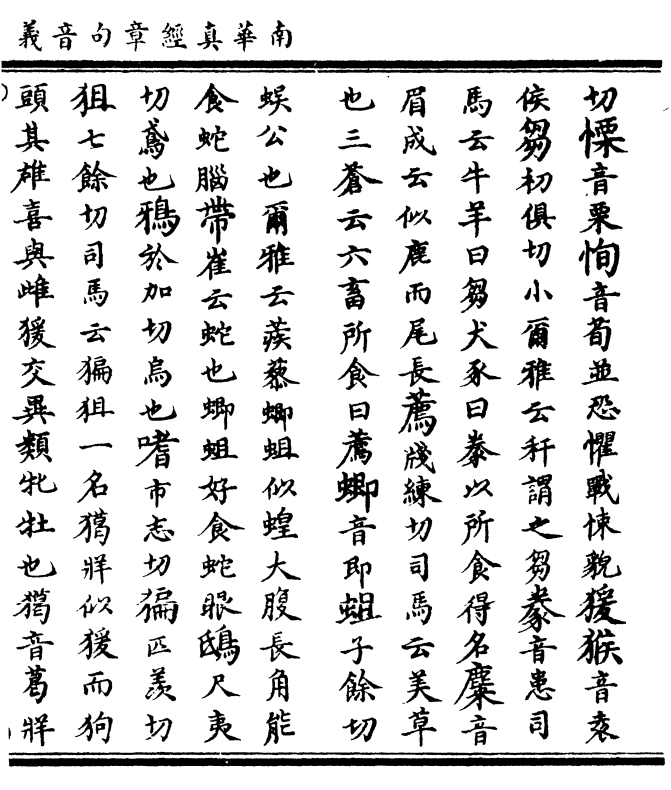 南華真經章句音義
切慄音栗恂音荀並恐懼戰悚貌猨猴音袁
侯芻初俱切小爾雅云秆謂之芻豢音患司
馬云牛羊曰芻犬豕曰豢以所食得名麋音
眉成云似鹿而尾長薦牋練切司馬云美草
也三蒼云六畜所食曰薦蝍音即蛆子餘切
蜈公也爾雅云蒺蔾蝍蛆似蝗大腹長角能
食蛇腦帶崔云蛇也蝍蛆好食蛇眼鴟尺夷
切鳶也鴉於加切烏也嗜市志切猵匹羨切
狙七餘切司馬云猵狙一名獦牂似猨而狗
頭其雄喜與雌猨交異類牝牡也獦音葛牂